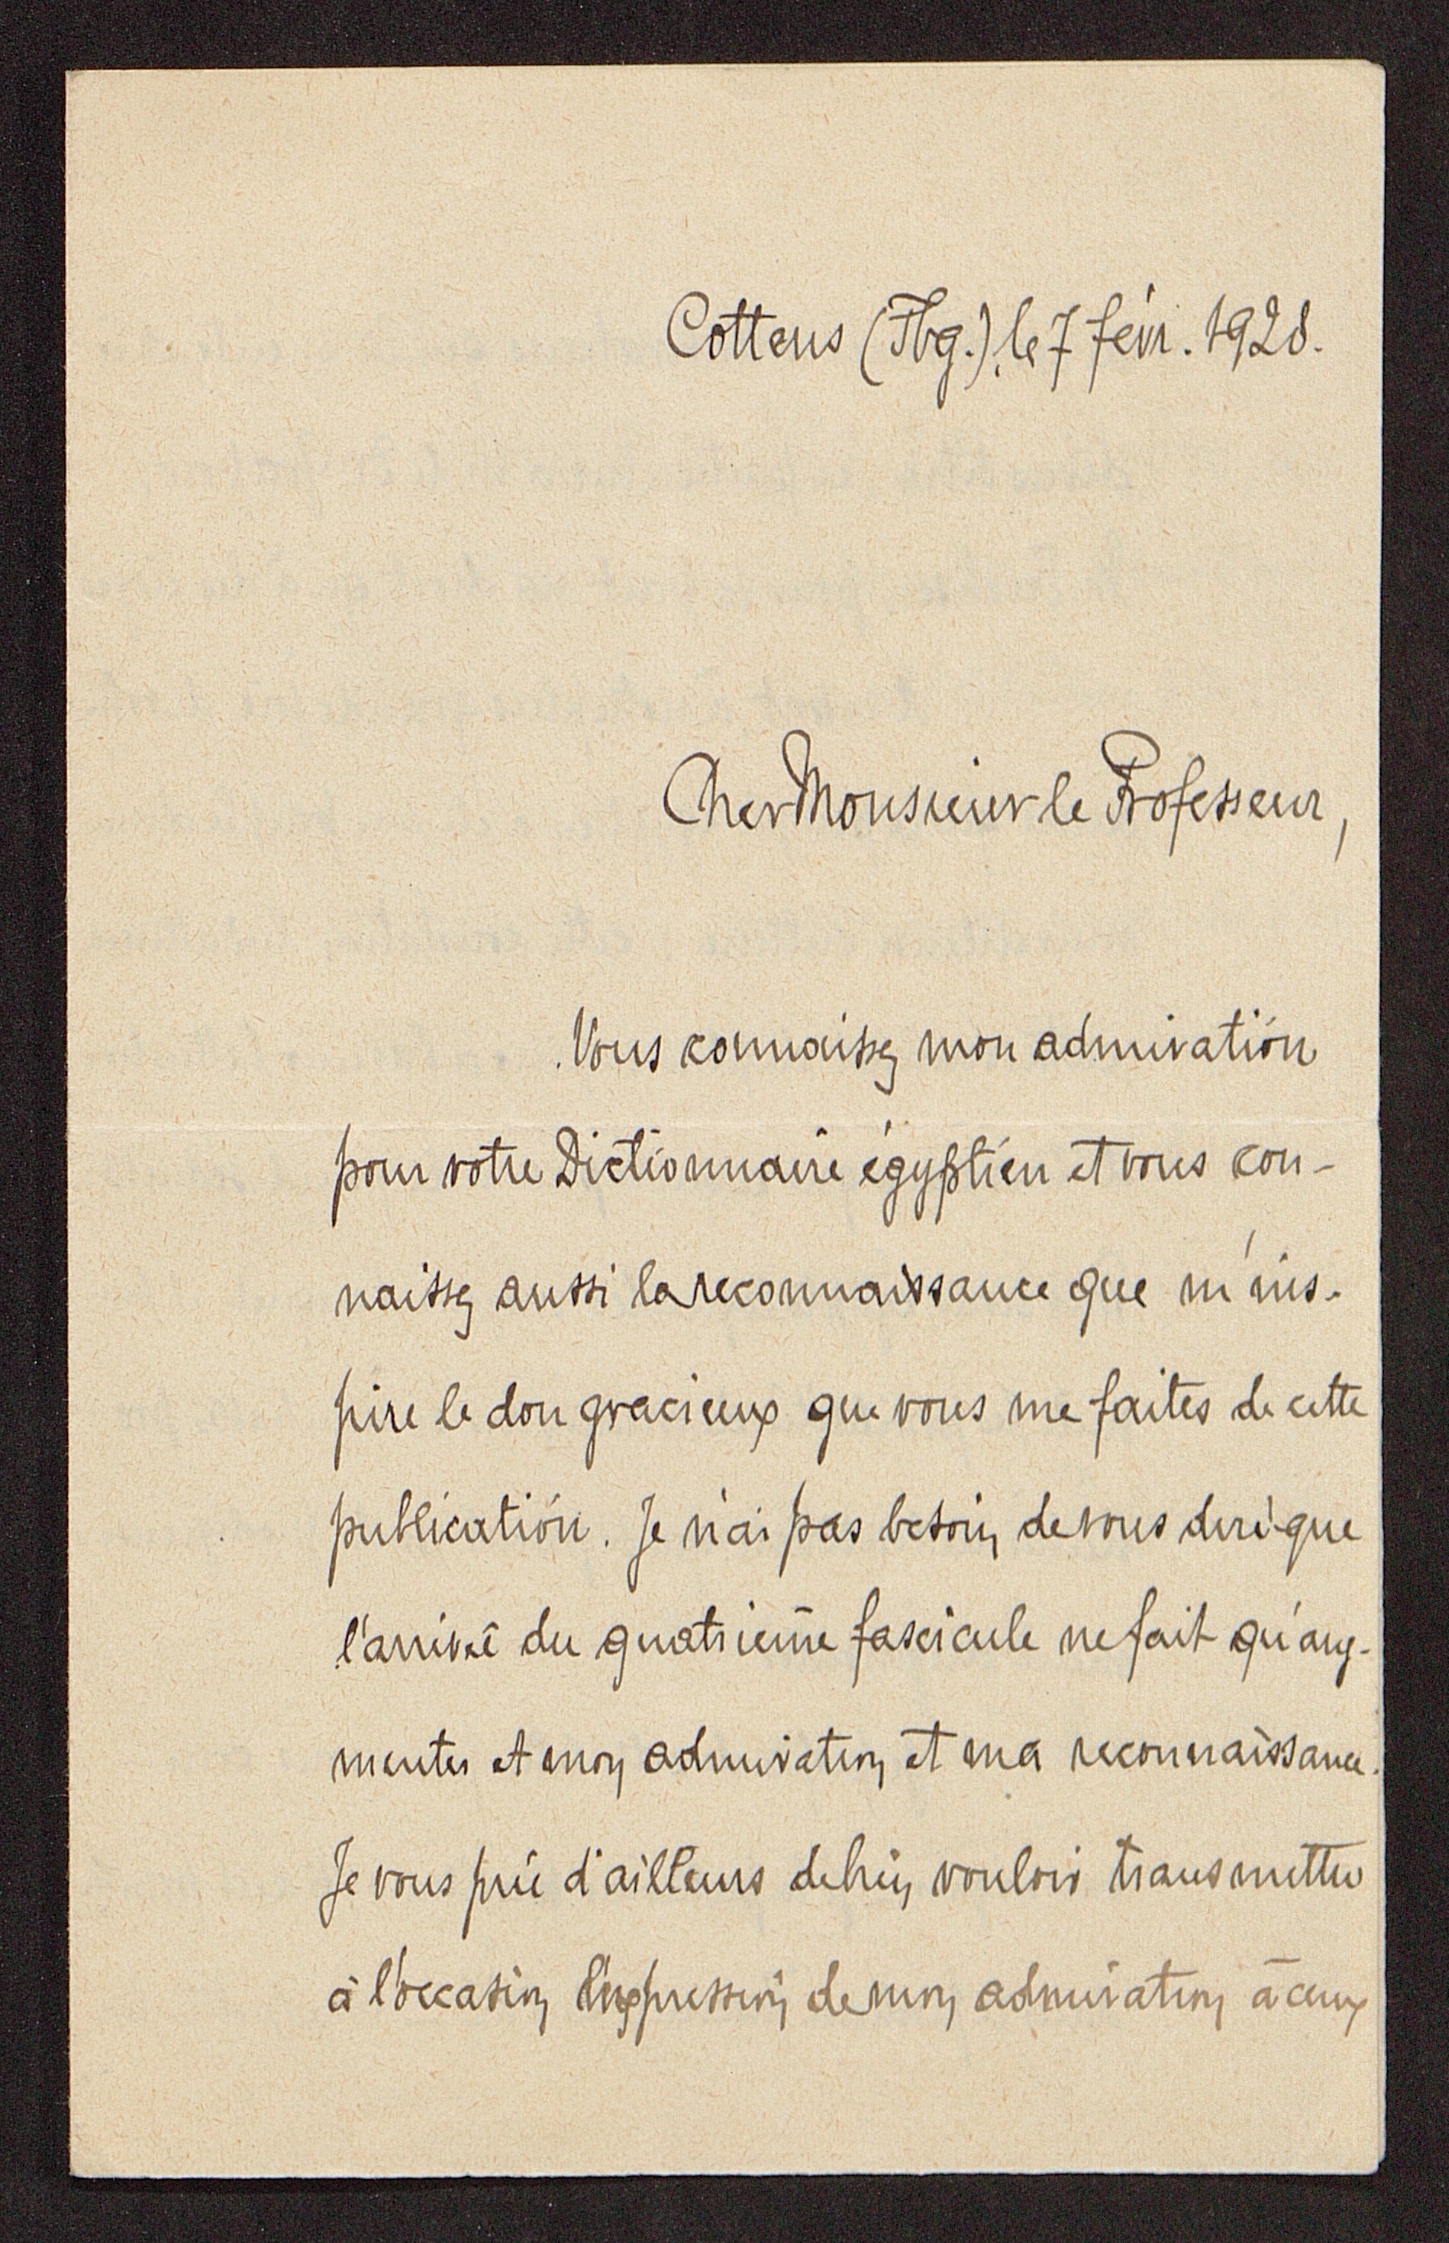 Cottens (Fbg.), le 7 févr. 1928.
Cher Monsieur le Professeur,
Vous connaissez mon admiration
pour votre Dictionnaire égyptien et vous con-
naissez aussi la reconnaissance que m'ins-
pire le don gracieux que vous me faites de cette
publication. Je n'ai pas besoin de vous dire que
l'arrivée du quatrième fascicule ne fait qu'aug-
menter et mon admiration et ma reconnaissance.
Je vous prie d'ailleurs de bien vouloir transmettre
à l'occasion l'expression de mon admiration à ceux